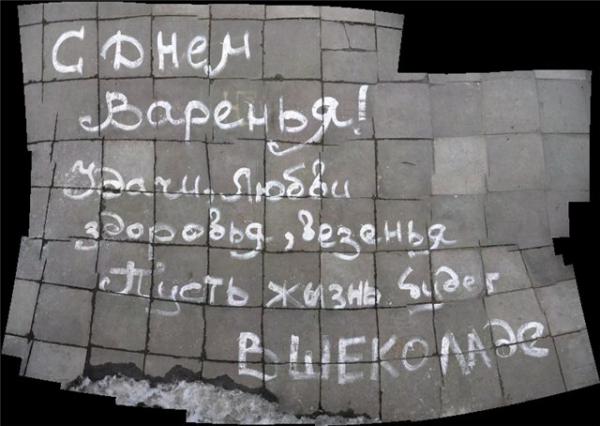 С Днем
Варенья!
Удачи, Любви
здоровья, везенья
Пусть жызнь будет
В ШЕКОЛАДе